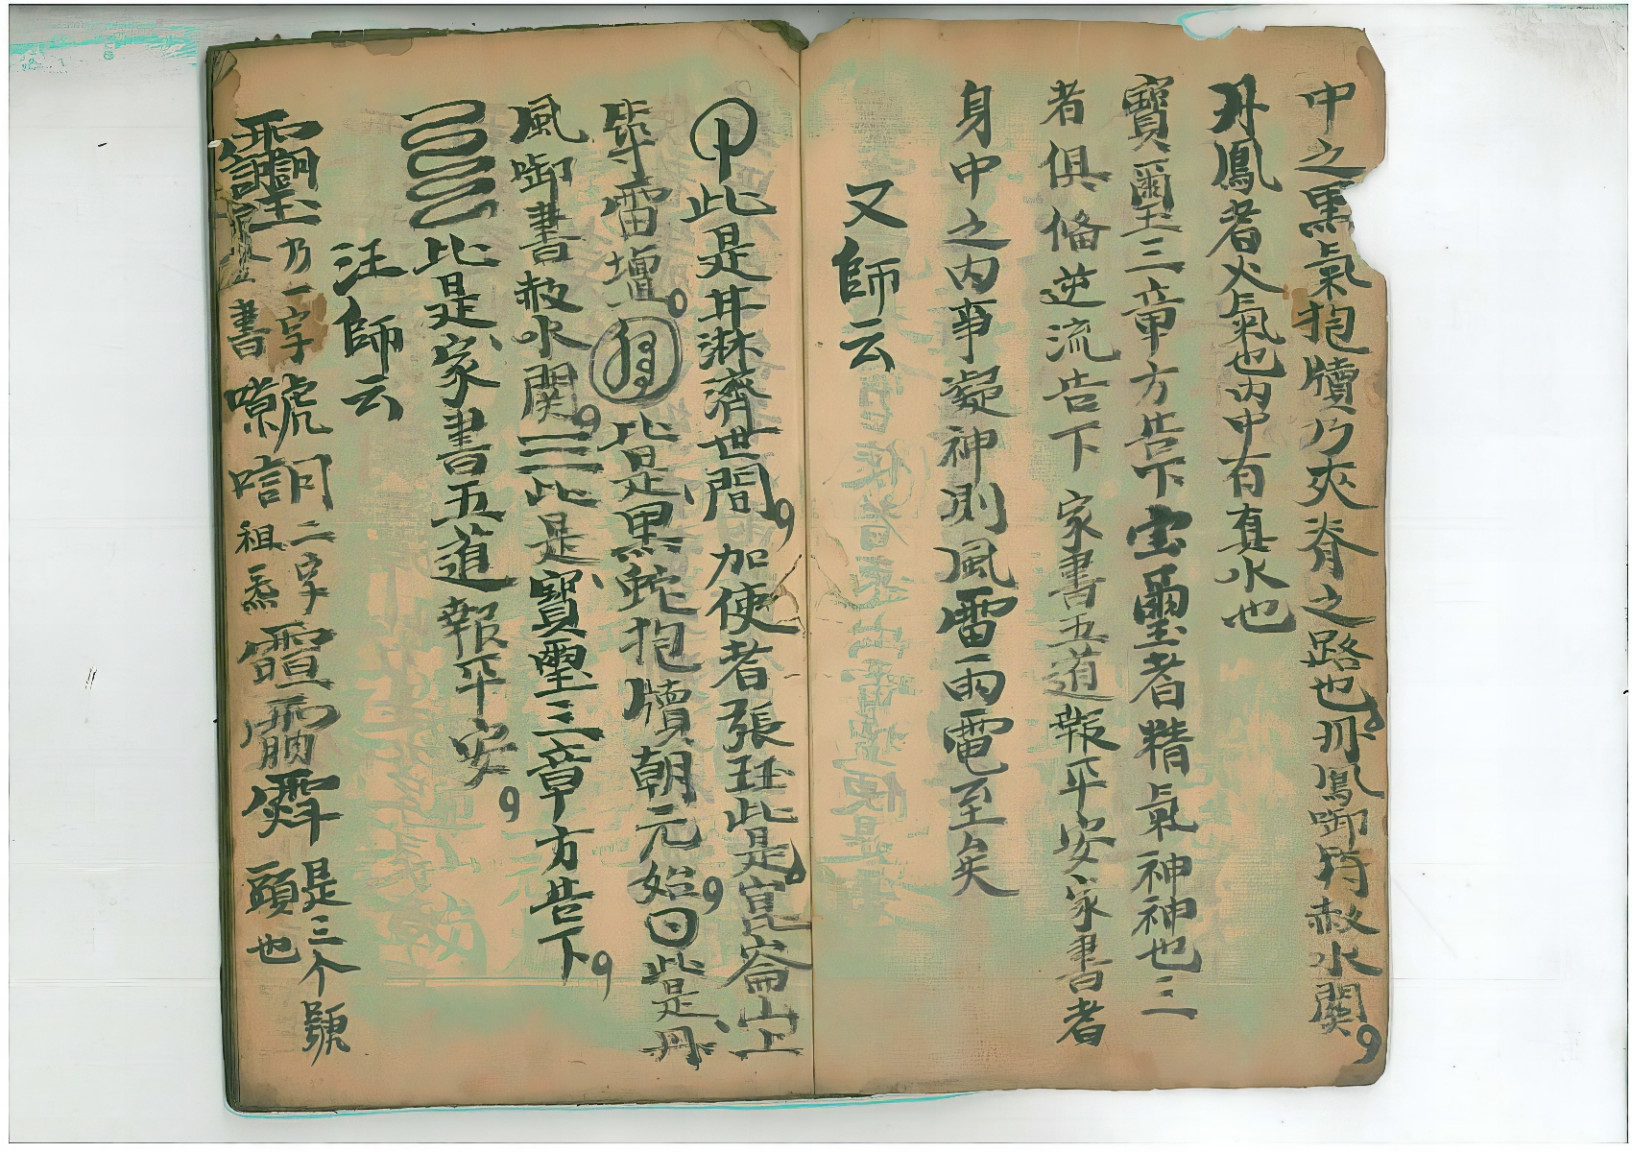 中之黑氣抱牘乃夾脊之路也丹鳳啣符赦水關
丹鳳者火氣也內中有真水也
寶璽三章方告下宝璽者精氣神神也三
者俱俻逆流告下家書五道報平安家書者
身中之內事凝神則風雷雨電至矣
又師云
此是甘淋濟世間加使者張珏此是崑崙山上
雷壇此是黑蛇抱牘朝元始曰此是丹
風啣書赦水関三此是寳璽三章方告下
此是家書五道報平安
汪師云
乃一字號詞二字是三个號
書噄唁祖炁頭也